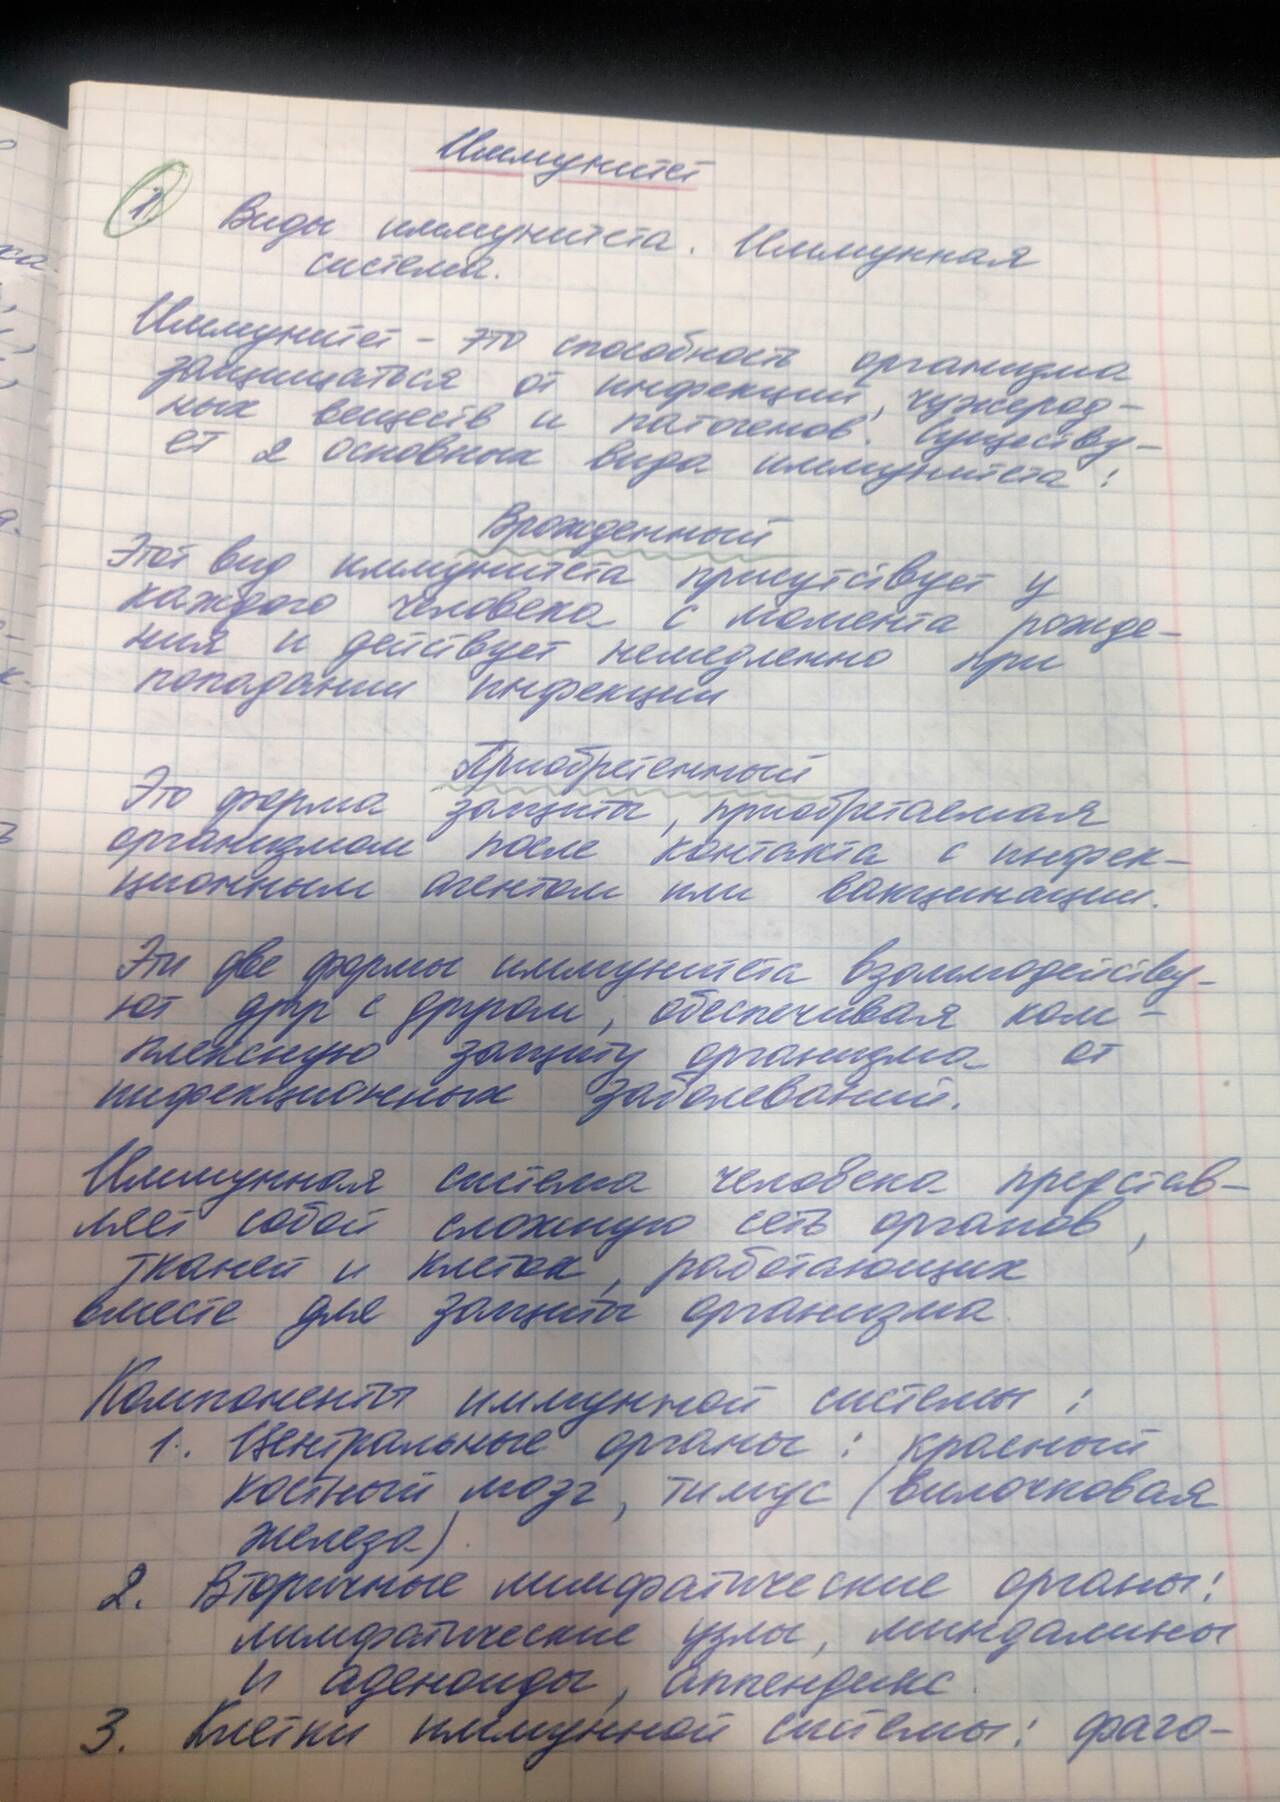 Иммунитет
1. Виды иммунитета. Иммунная
система.
Иммунитет - это способность организма
защищаться от инфекций, чужерод-
ных веществ и патогенов. Существу-
ет 2 основных вида иммунитета:
Врожденный
Этот вид иммунитета присутствует у
каждого человека с момента рожде-
ния и действует немедленно при
попадании инфекции
Приобретенный
Это форма защиты, приобретаемая
организмом после контакта с инфек-
ционным агентом или вакцинации.
Эти две формы иммунитета взаимодейству-
ют друг с другом, обеспечивая ком-
плексную защиту организма от
инфекционных заболеваний.
Иммунная система человека представ-
ляет собой сложную сеть органов,
тканей и клеток, работающих
вместе для защиты организма
Компоненты иммунной системы:
1. Центральные органы: красный
костный мозг, тимус (вилочковая
железа)
2. Вторичные лимфатические органы:
лимфатические узлы, миндалины
и аденоиды, аппендикс.
3. Клетки иммунной системы: фаго-